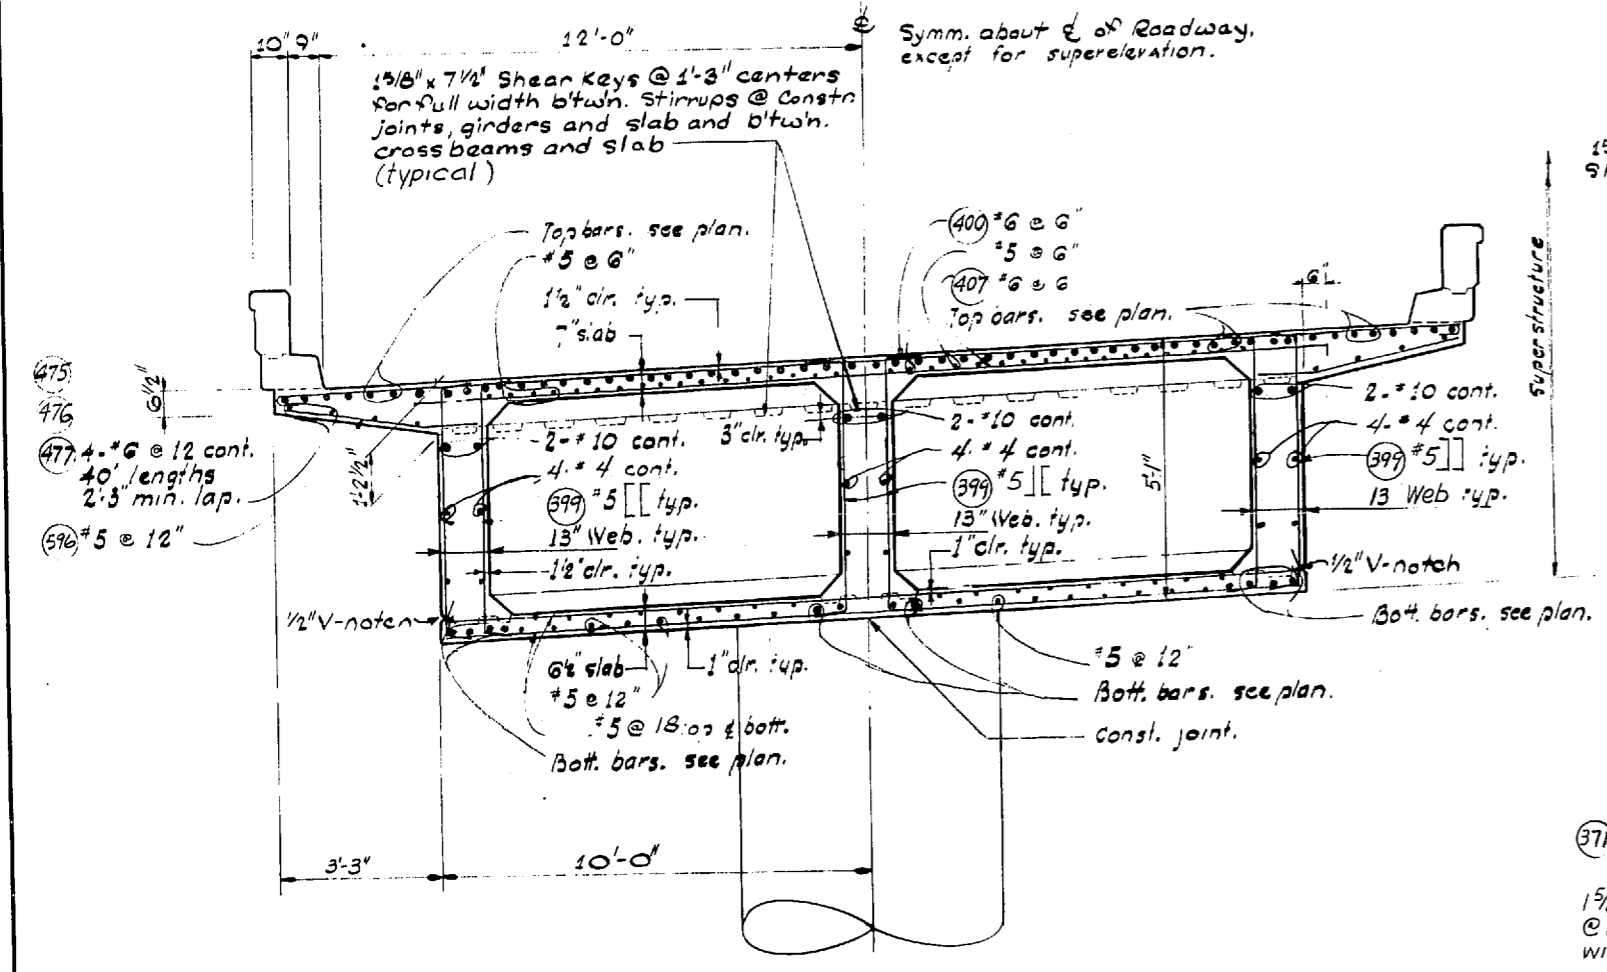 10" 9"
12'-0"
℄
Symm. about ℄ of Roadway,
except for superelevation.
1 5/8" x 7 1/2" Shear Keys @ 1'-3" centers
for full width b'tw'n. Stirrups @ Constr
joints, girders and slab and b'tw'n.
cross beams and slab
(typical)
Top bars. see plan.
#5 @ 6"
1 1/2" clr. typ.
7" slab
400 #6 @ 6"
#5 @ 6"
407 #6 @ 6
Top bars. see plan.
6"
Superstructure
475
476
477 4-#6 @ 12 cont.
40' lengths
2'-3" min. lap.
596 #5 @ 12"
6 1/2"
1'-2 1/2"
2-#10 cont.
4-#4 cont.
399 #5 [[ typ.
13" Web. typ.
1 1/2" clr. typ.
3" clr. typ.
2-#10 cont.
4-#4 cont.
399 #5 ][ typ.
13" Web. typ.
1" clr. typ.
5'-1"
2-#10 cont.
4-#4 cont.
399 #5 ]] typ.
13 Web typ.
1/2" V-notch
Bott. bars. see plan.
1/2" V-notch
6 1/2" slab
1" clr. typ.
#5 @ 12"
#5 @ 18 top & bott.
Bott. bars. see plan.
#5 @ 12"
Bott. bars. see plan.
Const. joint.
3'-3"
10'-0"
371
1 5/
@